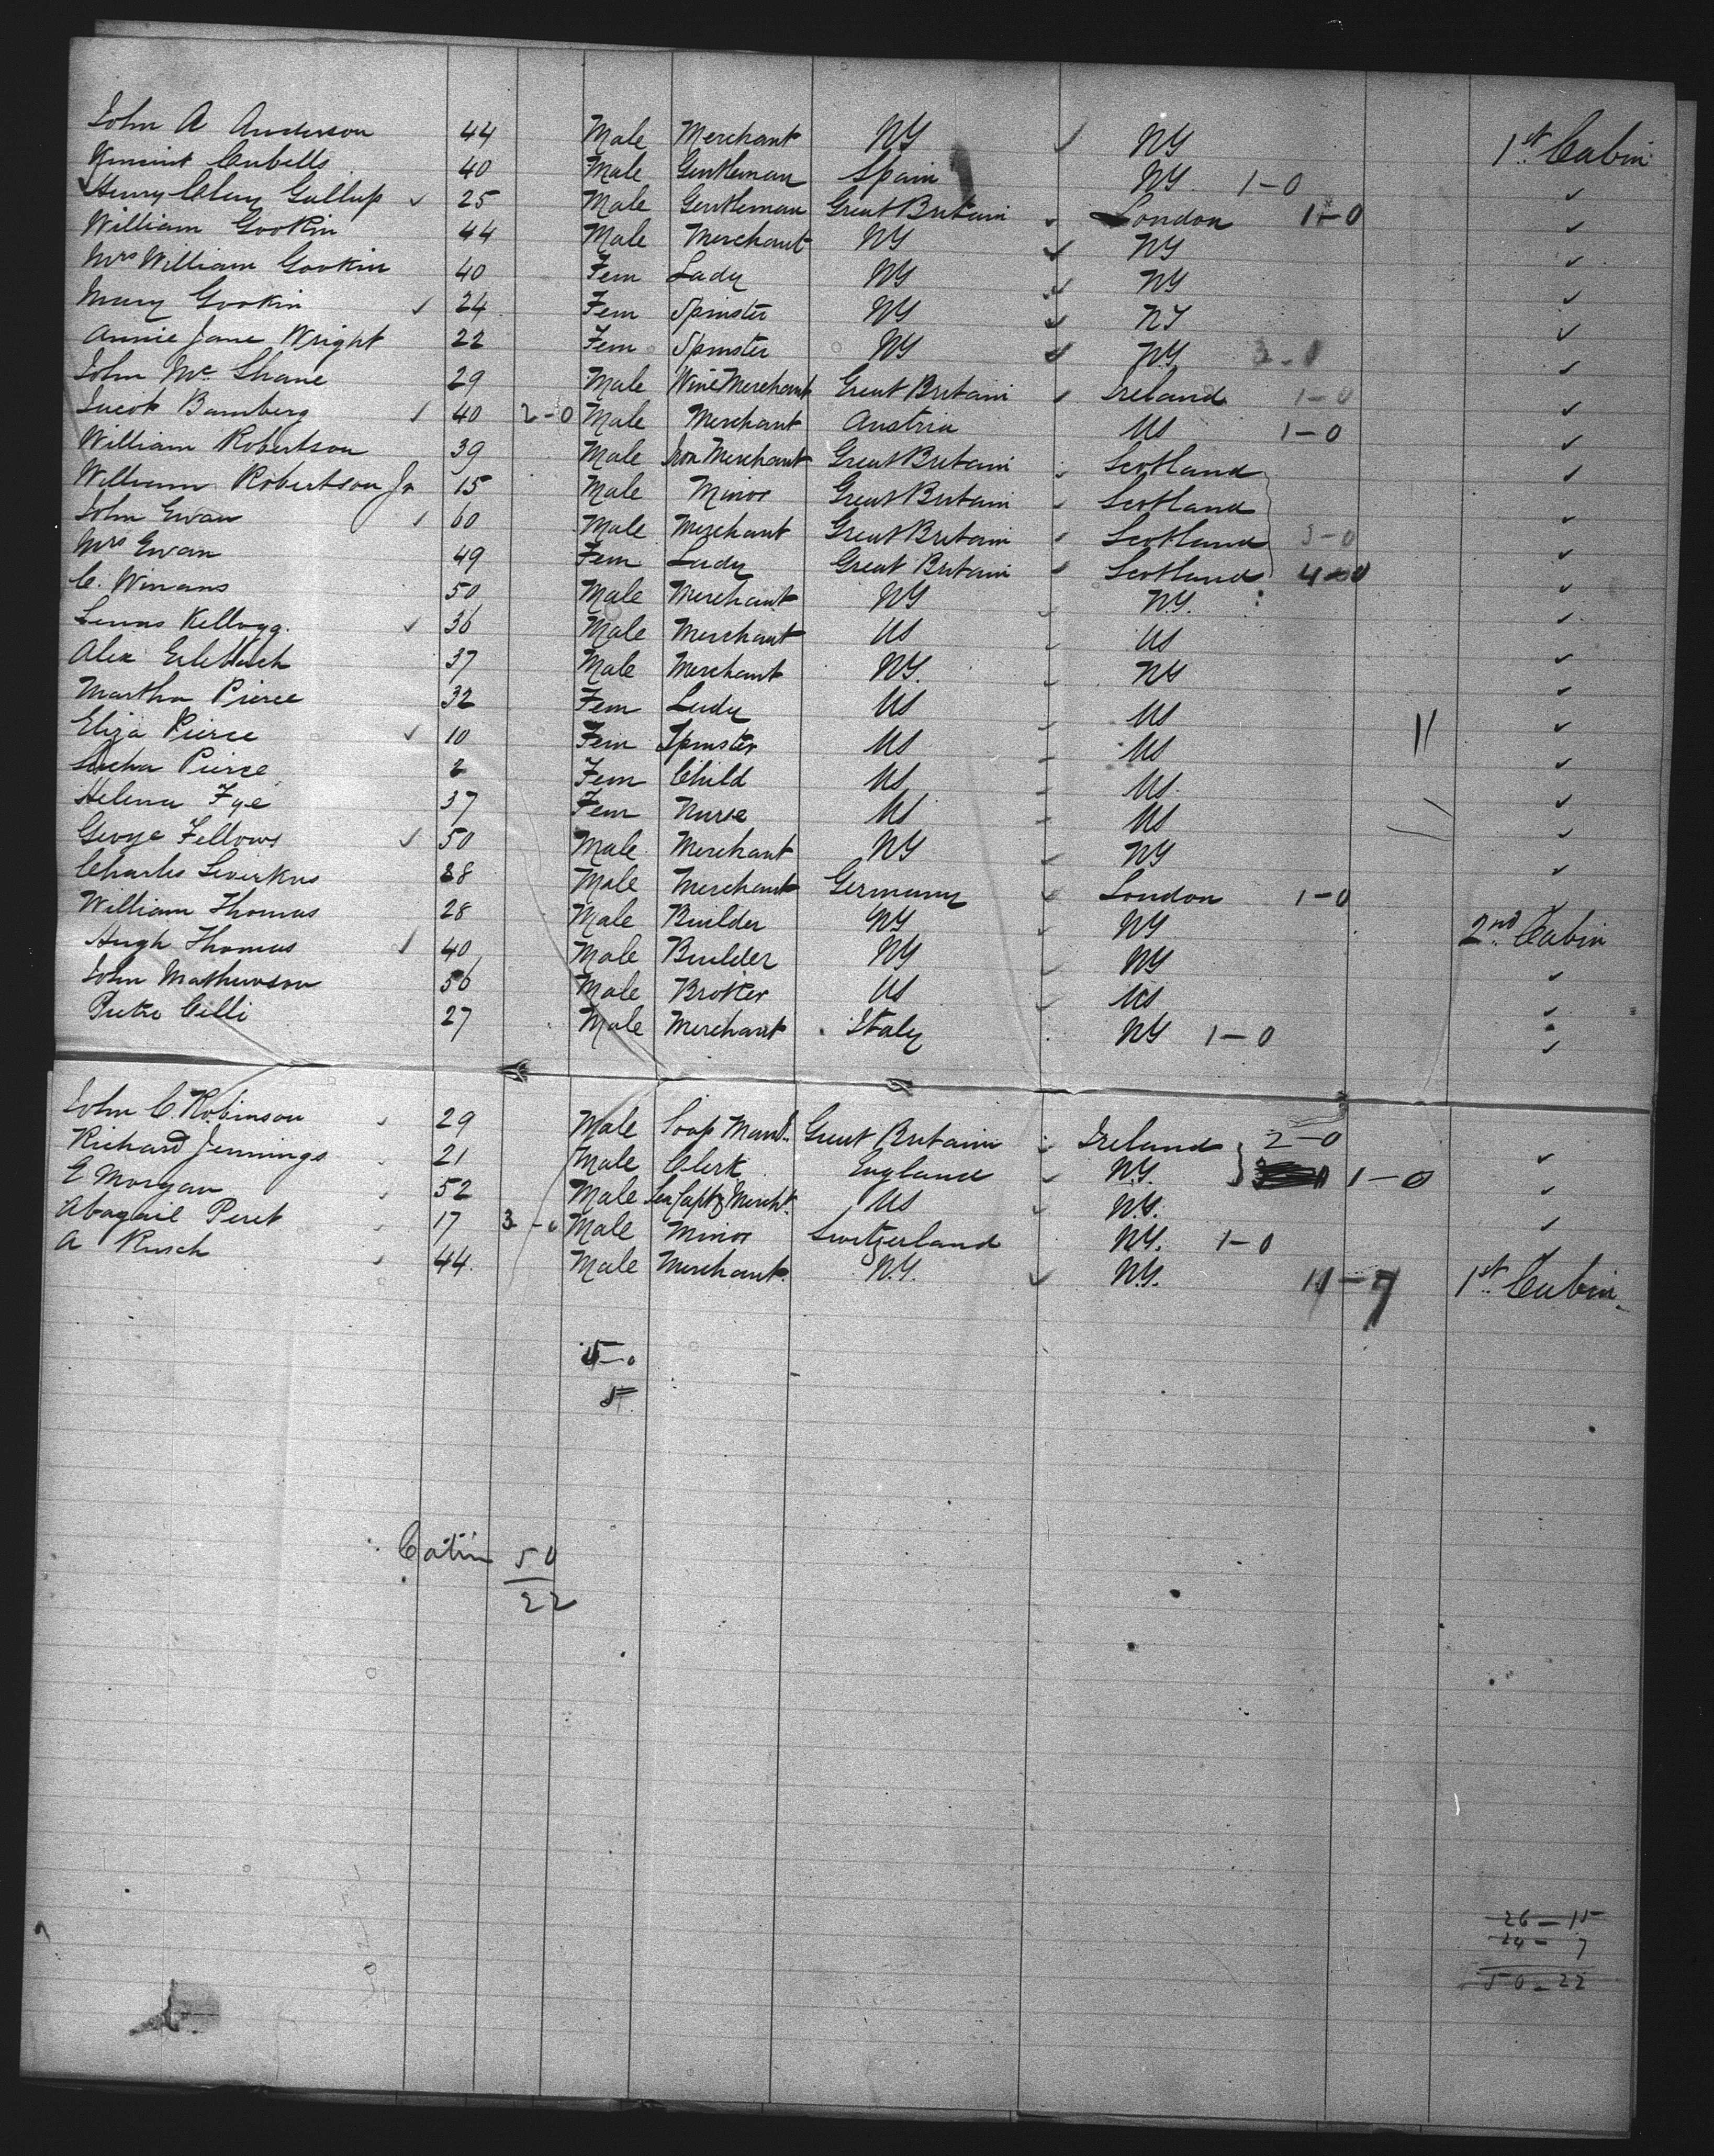 John A Anderson 44 Male Merchant NY ✓ NY 1st Cabin
Cubells 40 Male Gentleman Spain NY 1-0 ✓
Henry Clay Gallup ✓ 25 Male Gentleman Great Britain ✓ London 1-0 ✓
William Gookin 44 Male Merchant NY ✓ NY ✓
Mrs William Gookin 40 Fem Lady NY ✓ NY ✓
Mary Gookin ✓ 24 Fem Spinster NY ✓ NY ✓
Annie Jane Wright 22 Fem Spinster NY ✓ NY 3-0 ✓
John McShane 29 Male Wine Merchant Great Britain ✓ Ireland 1-0 ✓
Jacob Bamberg ✓ 40 2-0 Male Merchant Austria US 1-0 ✓
William Robertson 39 Male Iron Merchant Great Britain Scotland ✓
William Robertson Jr 15 Male Minor Great Britain Scotland ✓
John Ewan ✓ 60 Male Merchant Great Britain Scotland 3-0 ✓
Mrs Ewan 49 Fem Lady Great Britain Scotland 4-0 ✓
C. Winans 50 Male Merchant NY N.Y. ✓
Kellogg. ✓ 36 Male Merchant US US ✓
Alex 37 Male Merchant NY. NY ✓
Martha Pierce 32 Fem Lady US US ✓
Eliza Pierce ✓ 10 Fem Spinster US US 11 ✓
Pierce 2 Fem Child US US. ✓
Helena Fye 37 Fem Nurse US US ✓
George Fellows ✓ 50 Male Merchant NY NY ✓
Charles Leverkus 38 Male Merchant Germany London 1-0 ✓
William Thomas 28 Male Builder NY NY 2nd Cabin
Hugh Thomas ✓ 40 Male Builder NY NY ✓
John Mathewson 56 Male Broker US US ✓
Cilli 27 Male Merchant Italy NY 1-0 ✓
John C. Robinson 29 Male Soap Manf. Great Britain Ireland 2-0 ✓
Richard Jennings 21 Male Clerk England N.Y. 1-0 ✓
E Morgan 52 Male Sea Capt & Mercht. US N.Y. ✓
Abagail Peret 17 3-0 Male Minor Switzerland N.Y. 1-0
A Rusch 44. Male Merchant. N.Y. ✓ N.Y. 11-7 1st Cabin
5-0
5
Cabin 50
22
26-15
24-7
50-22